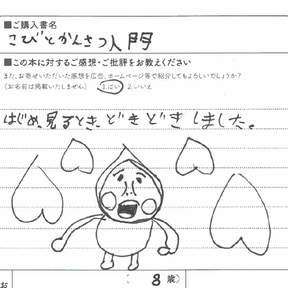 ■ご購入書名
こびとかんさつ入門
■この本に対するご感想・ご批評をお教えください
また、お寄せいただいた感想を広告、ホームページ等で紹介してもよろしいでしょうか?
(お名前は掲載いたしません) 1.はい 2.いいえ
はじめ、見るとき、どきどきしました。
お 8 歳)